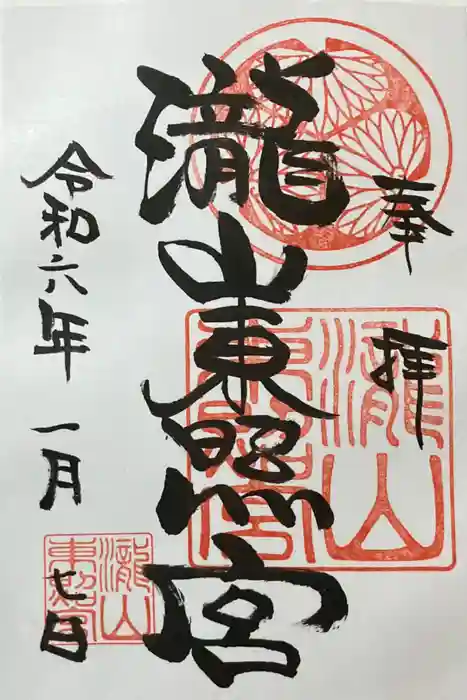 奉拝
瀧山東照宮
令和六年一月七日
瀧山
東照宮
瀧山
東照宮